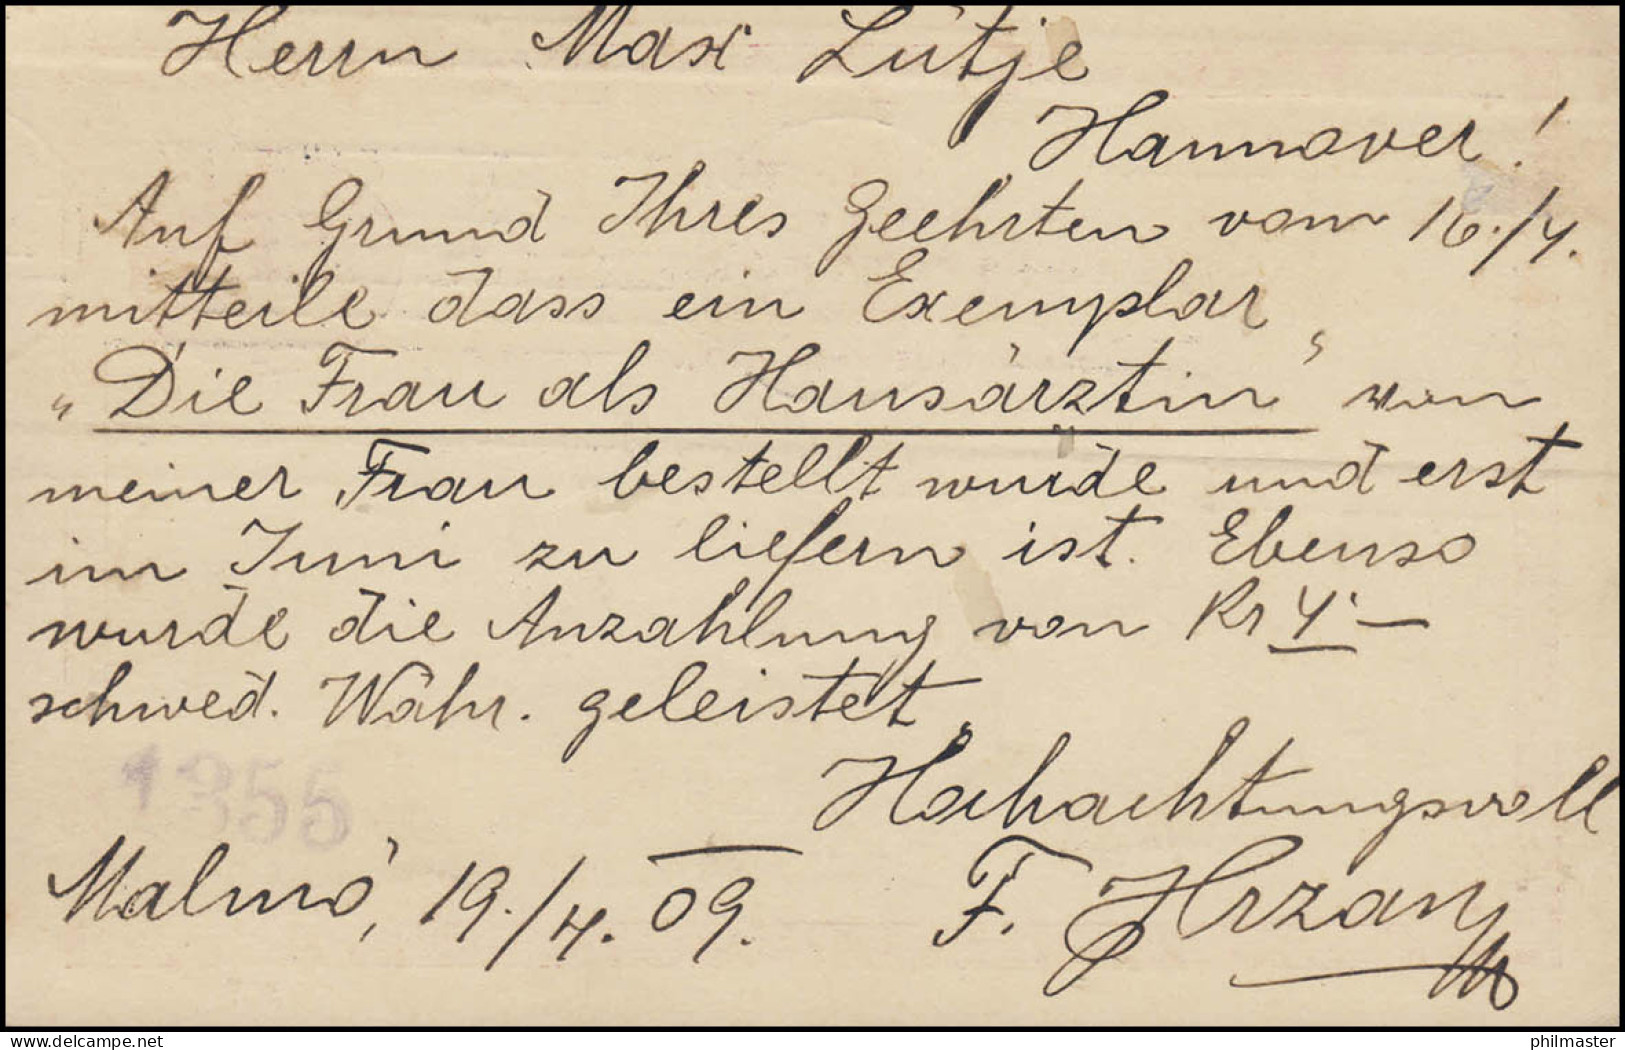 Herrn Max Lütje
Hannover!
Auf Grund Ihres Geehrten vom 16./4.
mitteile dass ein Exemplar
„Die Frau als Hausärztin“ von
meiner Frau bestellt wurde und erst
im Juni zu liefern ist. Ebenso
wurde die Anzahlung von Kr 4.—
schwed. Währ. geleistet.
1355
Hochachtungsvoll
Malmö, 19./4. 09. F. Hrzan
delcampe.net
philmaster